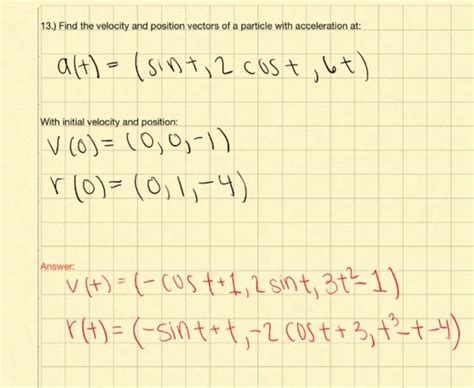 13.) Find the velocity and position vectors of a particle with acceleration at:
a(t) = (sint, 2 cost, 6t)
With initial velocity and position:
v(0) = (0,0,-1)
r(0) = (0,1,-4)
Answer:
v(t) = (-cost+1, 2sint, 3t²-1)
r(t) = (-sint+t, -2cost+3, t³-t-4)